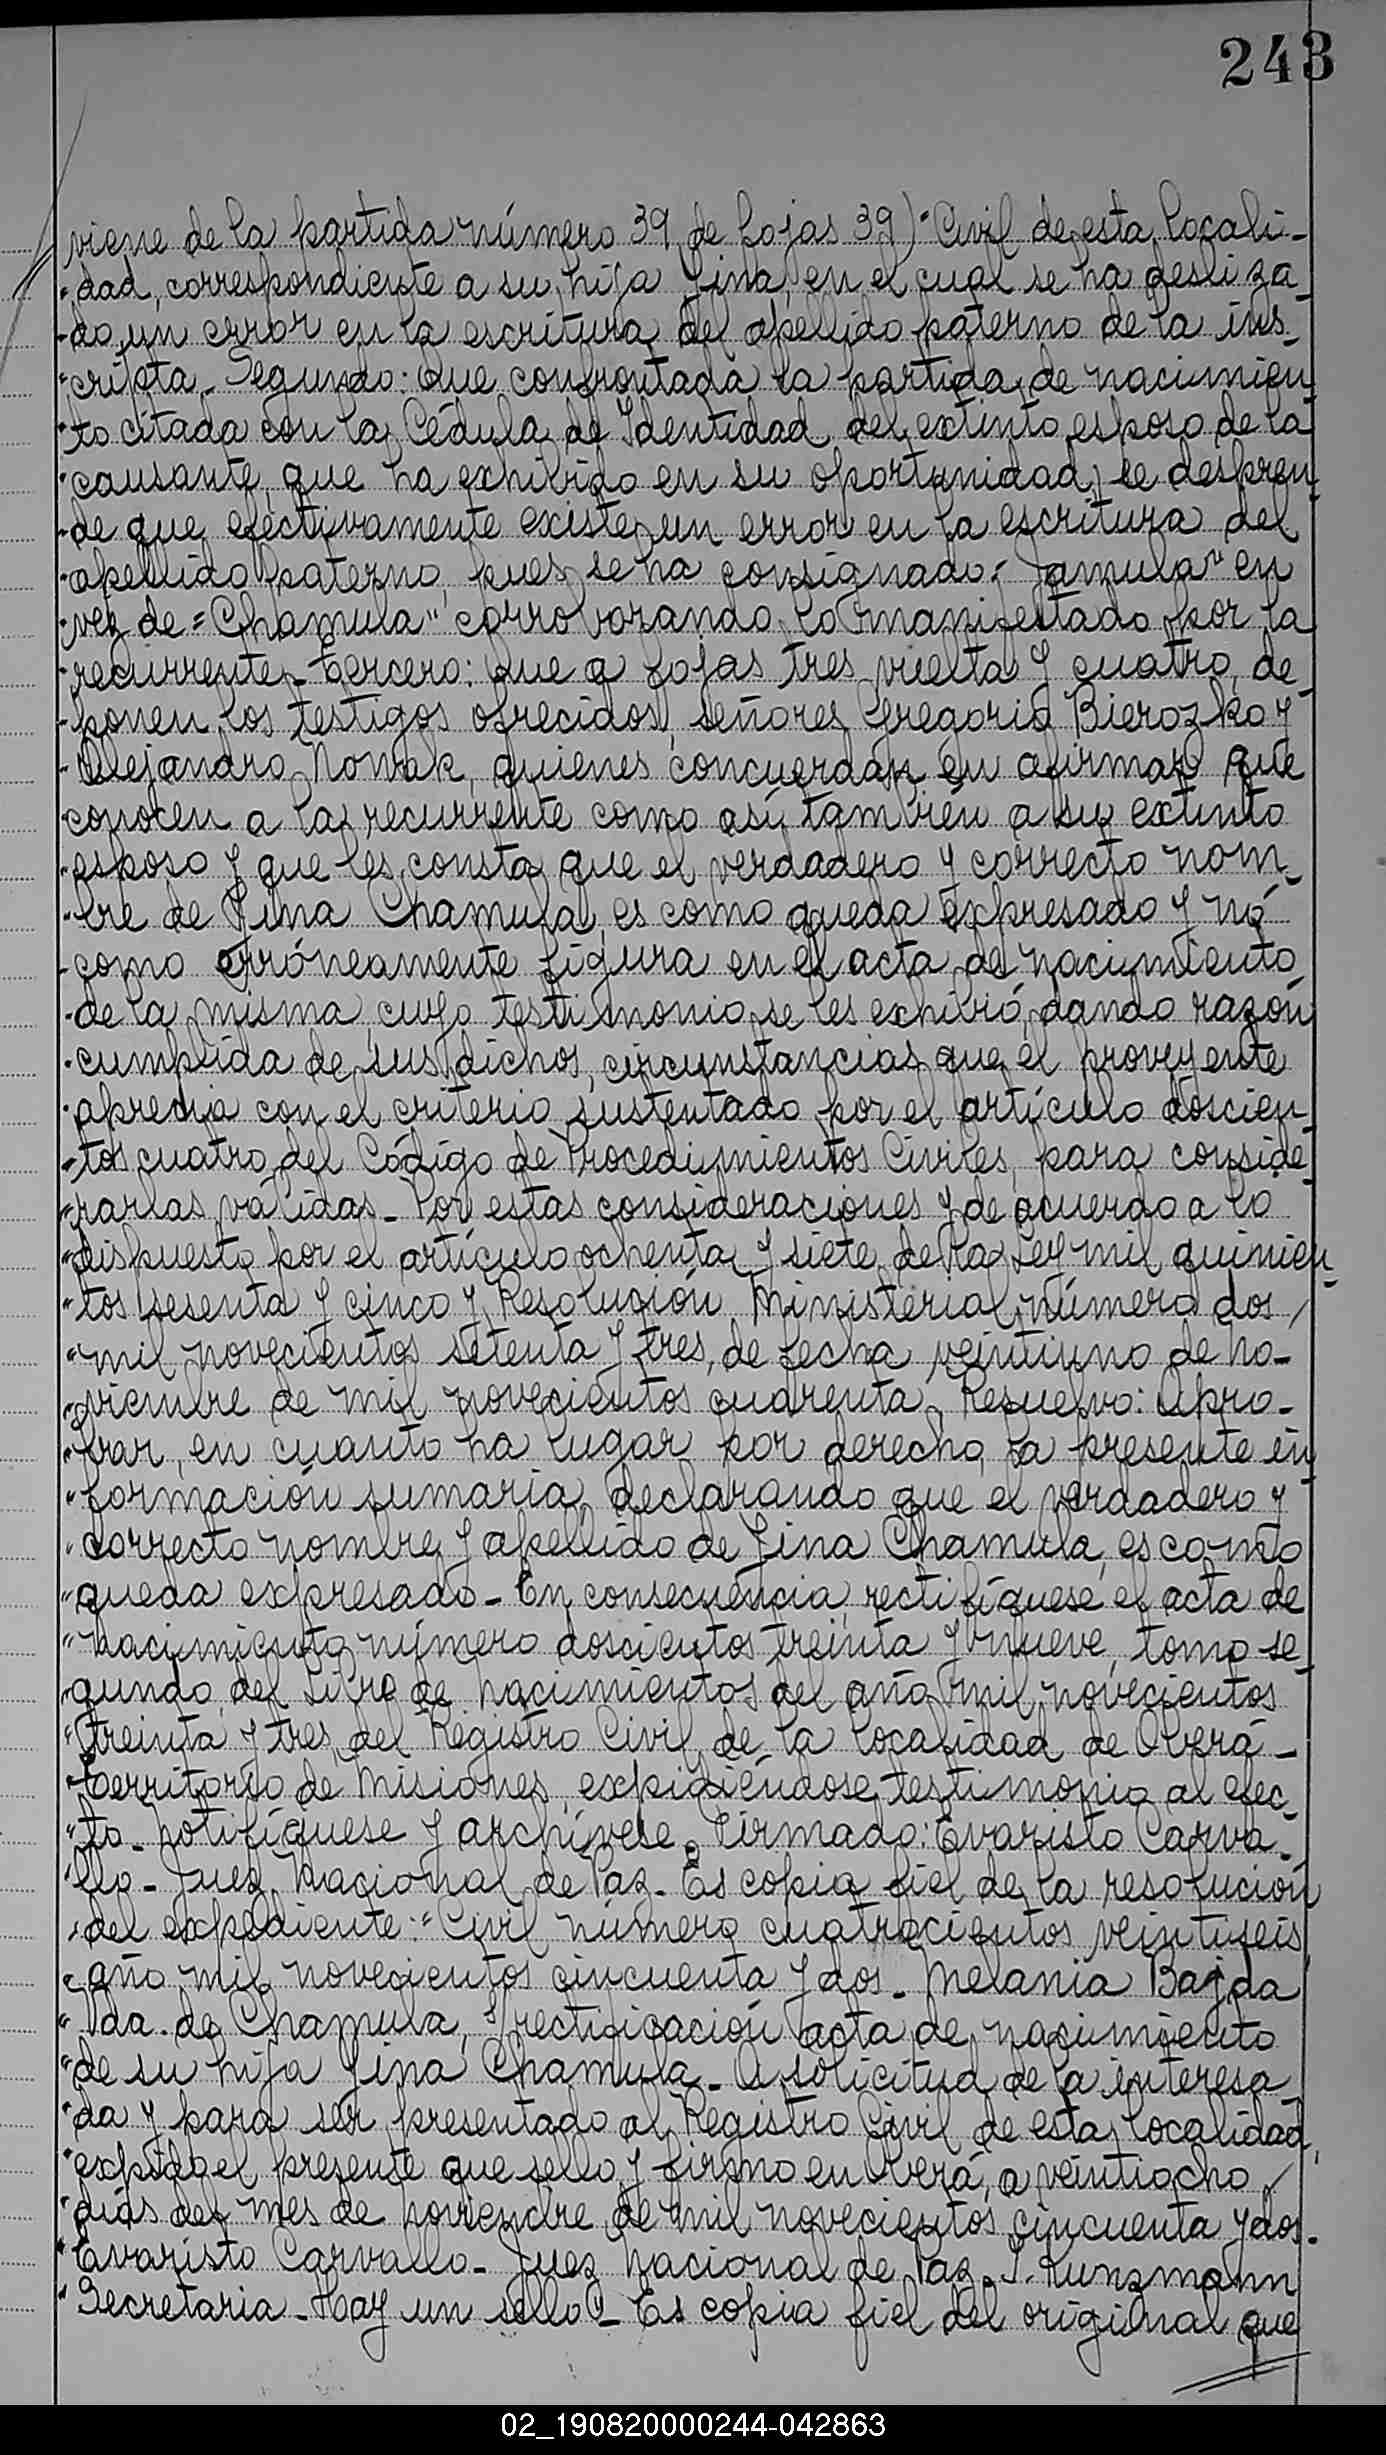 243
viene de la partida número 39 de fojas 39) "Civil de esta locali-
"dad, correspondiente a su hija Lina, en el cual se ha desliza-
"do un error en la escritura del apellido paterno de la ins-
"cripta. Segundo: Que confrontada la partida de nacimien
"to citada con la Cédula de Identidad del extinto esposo de la
"causante, que ha exhibido en su oportunidad, se despren
"de que efectivamente existe un error en la escritura del
"apellido paterno, pues se ha consignado "Jamula" en
"vez de "Chamula" corroborando lo manifestado por la
"recurrente. Tercero: Que a fojas tres vuelta y cuatro, de-
"ponen los testigos ofrecidos, señores Gregorio Bierozko y
"Alejandro Nowak, quienes concuerdan en afirmar que
"conocen a la recurrente como así también a su extinto
"esposo y que les consta que el verdadero y correcto nom-
"bre de Lina Chamula, es como queda expresado y nó
"como erróneamente figura en el acta de nacimiento
"de la misma, cuyo testimonio se les exhibió, dando razón
"cumplida de sus dichos, circunstancias que el proveyente
"aprecia con el criterio sustentado por el artículo doscien-
"tos cuatro del Código de Procedimientos Civiles, para conside-
"rarlas válidas. Por estas consideraciones y de acuerdo a lo
"dispuesto por el artículo ochenta y siete de la Ley mil quinien-
"tos sesenta y cinco y Resolución Ministerial número dos
"mil novecientos setenta y tres, de fecha veintiuno de no-
"viembre de mil novecientos cuarenta, Resuelvo: Apro-
"bar, en cuanto ha lugar por derecho, la presente in
"formación sumaria, declarando que el verdadero y
"correcto nombre y apellido de Lina Chamula, es como
"queda expresado. En consecuencia, rectifíquese el acta de
"nacimiento número doscientos treinta y nueve, tomo se-
"gundo, del Libro de nacimientos del año mil novecientos
"treinta y tres, del Registro Civil de la localidad de Oberá-
"territorio de Misiones, expidiéndose testimonio al efec-
"to. Notifíquese y archívese. Firmado: Evaristo Carva-
"llo. Juez Nacional de Paz. Es copia fiel de la resolución
"del expediente: "Civil número cuatrocientos veintiseis
"año mil novecientos cincuenta y dos. Melania Bajda
"Vda. de Chamula, rectificación acta de nacimiento
"de su hija Lina Chamula. A solicitud de la interesa
"da y para ser presentado al Registro Civil de esta localidad,
"expido el presente que sello y firmo en Oberá, a veintiocho
"días del mes de noviembre de mil novecientos cincuenta y dos.
"Evaristo Carvallo. Juez Nacional de Paz. Kunzmann
"Secretaria. Hay un sello". Es copia fiel del original que
02_190820000244-042863